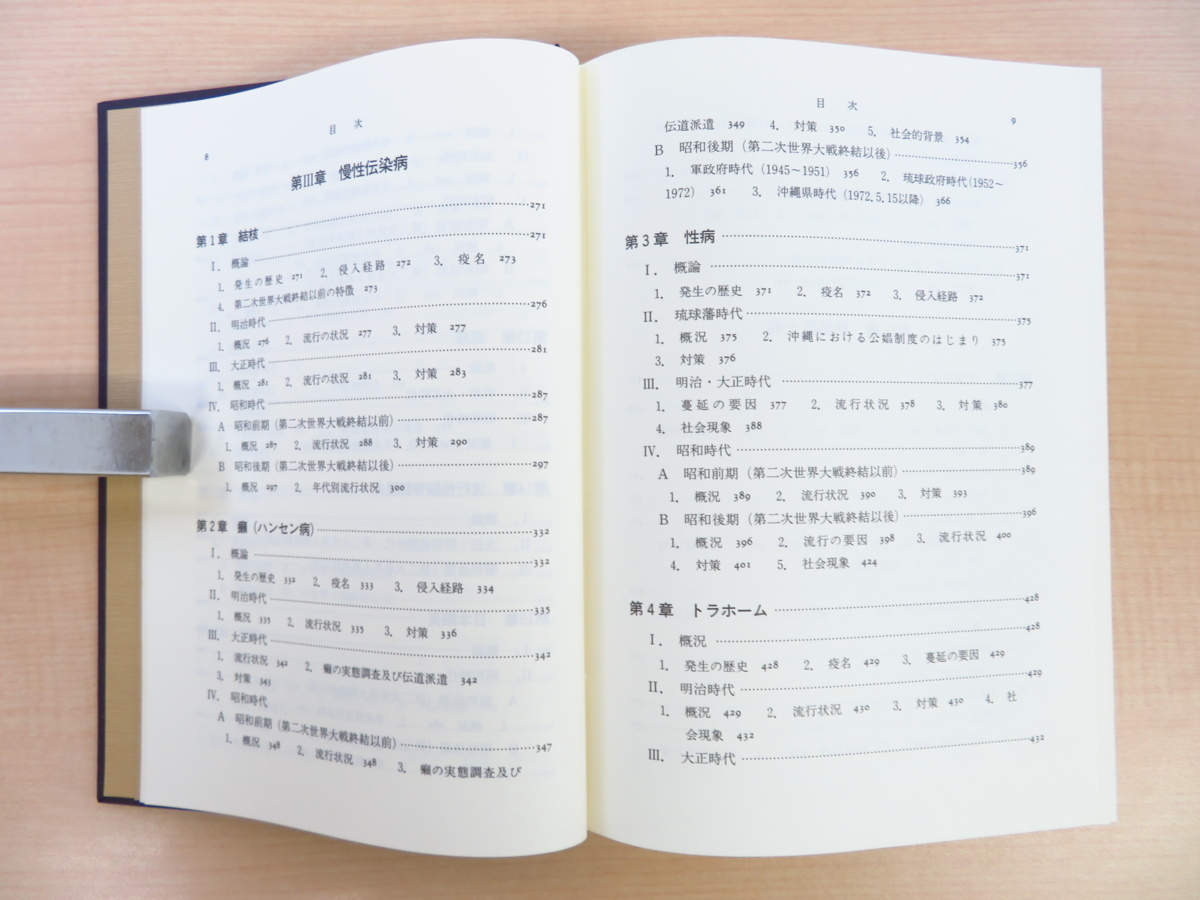 目 次
8
第III章 慢性伝染病
第1章 結核 271
I. 概論 271
1. 発生の歴史 271 2. 侵入経路 272 3. 疫名 273
4. 第二次世界大戦終結以前の特徴 273
II. 明治時代 276
1. 概況 276 2. 流行の状況 277 3. 対策 277
III. 大正時代 281
1. 概況 281 2. 流行の状況 281 3. 対策 283
IV. 昭和時代 287
A 昭和前期(第二次世界大戦終結以前) 287
1. 概況 287 2. 流行状況 288 3. 対策 290
B 昭和後期(第二次世界大戦終結以後) 297
1. 概況 297 2. 年代別流行状況 300
第2章 癩(ハンセン病) 332
I. 概論 332
1. 発生の歴史 332 2. 疫名 333 3. 侵入経路 334
II. 明治時代 335
1. 概況 335 2. 流行状況 335 3. 対策 336
III. 大正時代 342
1. 流行状況 342 2. 癩の実態調査及び伝道派遣 342
3. 対策 343
IV. 昭和時代
A 昭和前期(第二次世界大戦終結以前) 347
1. 概況 348 2. 流行状況 348 3. 癩の実態調査及び
目 次
9
伝道派遣 349 4. 対策 350 5. 社会的背景 354
B 昭和後期(第二次世界大戦終結以後) 356
1. 軍政府時代(1945〜1951) 356 2. 琉球政府時代(1952〜
1972) 361 3. 沖縄県時代(1972.5.15以降) 366
第3章 性病 371
I. 概論 371
1. 発生の歴史 371 2. 疫名 372 3. 侵入経路 372
II. 琉球藩時代 375
1. 概況 375 2. 沖縄における公娼制度のはじまり 375
3. 対策 376
III. 明治・大正時代 377
1. 蔓延の要因 377 2. 流行状況 378 3. 対策 380
4. 社会現象 388
IV. 昭和時代 389
A 昭和前期(第二次世界大戦終結以前) 389
1. 概況 389 2. 流行状況 390 3. 対策 393
B 昭和後期(第二次世界大戦終結以後) 396
1. 概況 396 2. 流行の要因 398 3. 流行状況 400
4. 対策 401 5. 社会現象 424
第4章 トラホーム 428
I. 概況 428
1. 発生の歴史 428 2. 疫名 429 3. 蔓延の要因 429
II. 明治時代 429
1. 概況 429 2. 流行状況 430 3. 対策 430 4. 社
会現象 432
III. 大正時代 432